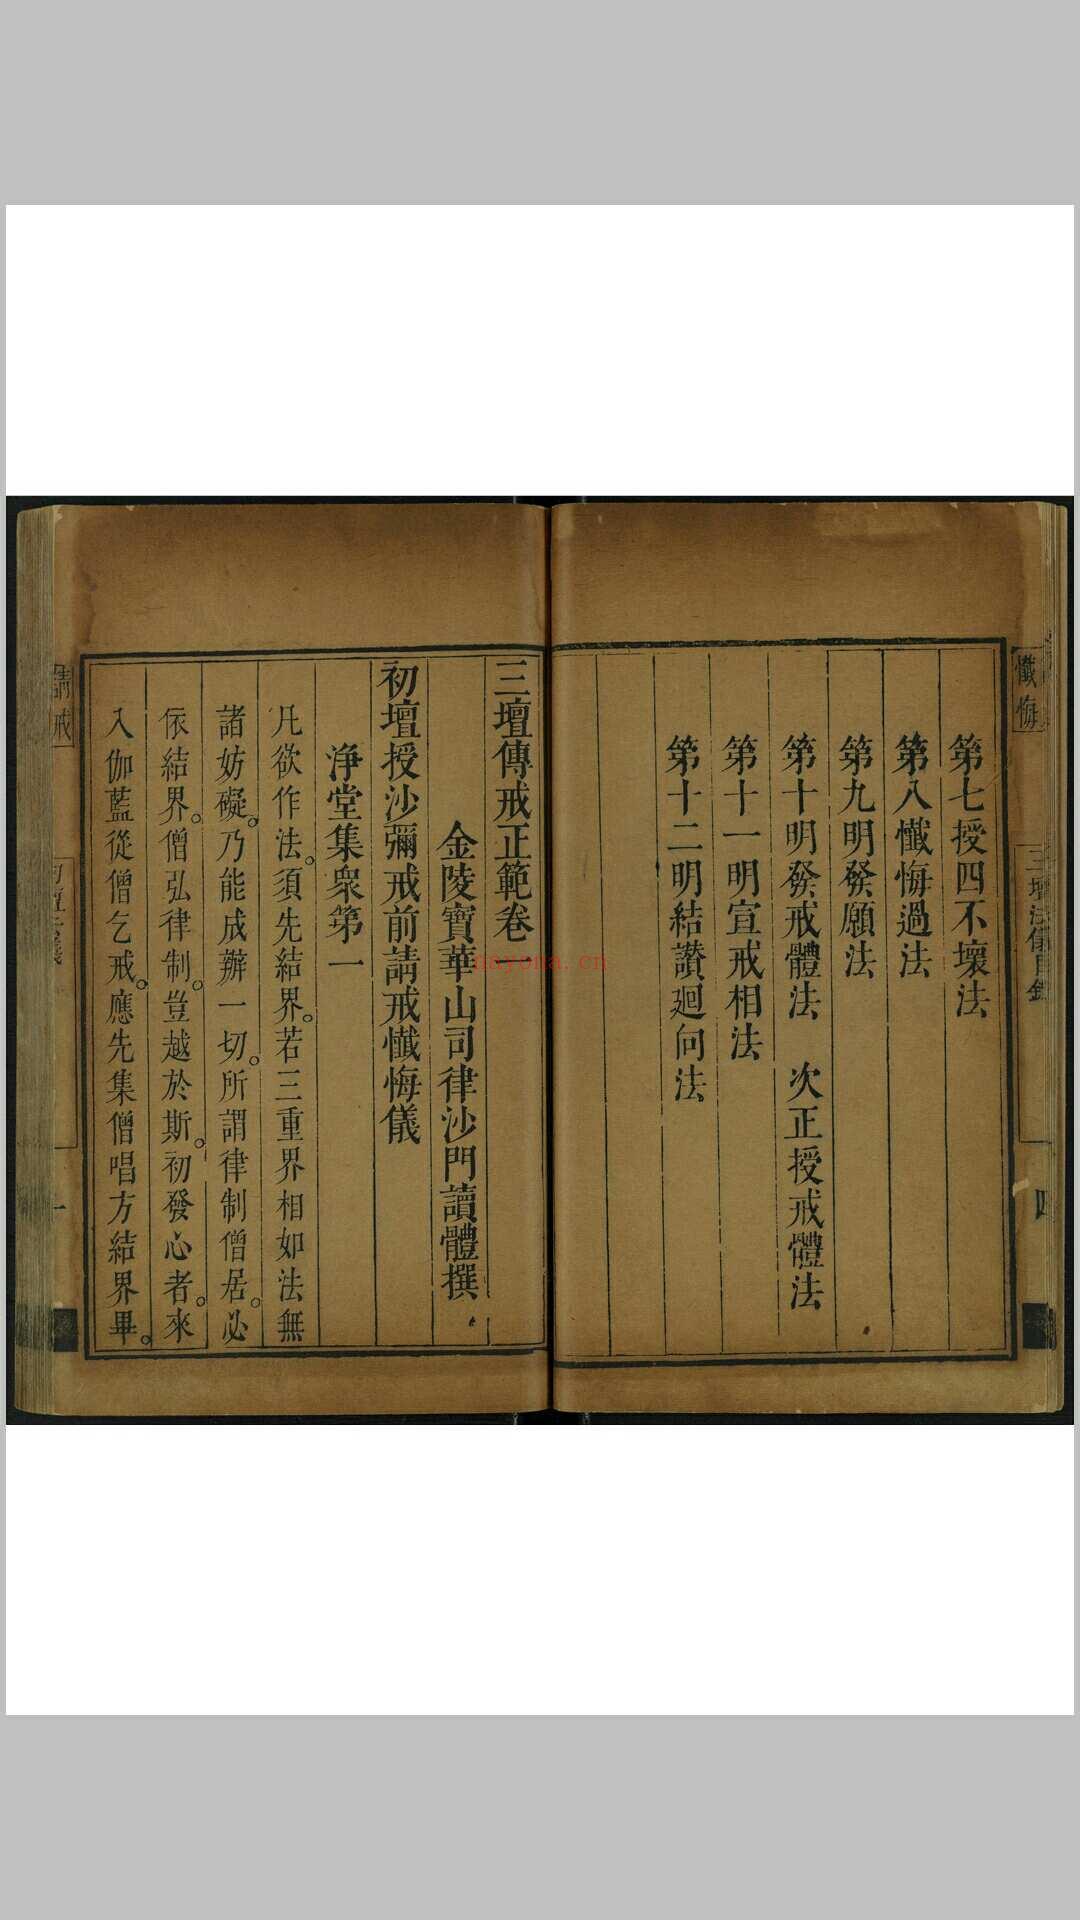 懺悔
三壇法儀目錄
四
第七授四不壞法
第八懺悔過法
第九明發願法
第十明發戒體法　次正授戒體法
第十一明宣戒相法
第十二明結讚廻向法
三壇傳戒正範卷
金陵寶華山司律沙門讀體撰
初壇授沙彌戒前請戒懺悔儀
淨堂集衆第一
凡欲作法。須先結界。若三重界相如法無
諸妨礙。乃能成辦一切。所謂律制僧居。必
依結界。僧弘律制。豈越於斯。初發心者。來
入伽藍從僧乞戒。應先集僧唱方結界畢。
請戒
一
nayona.cn